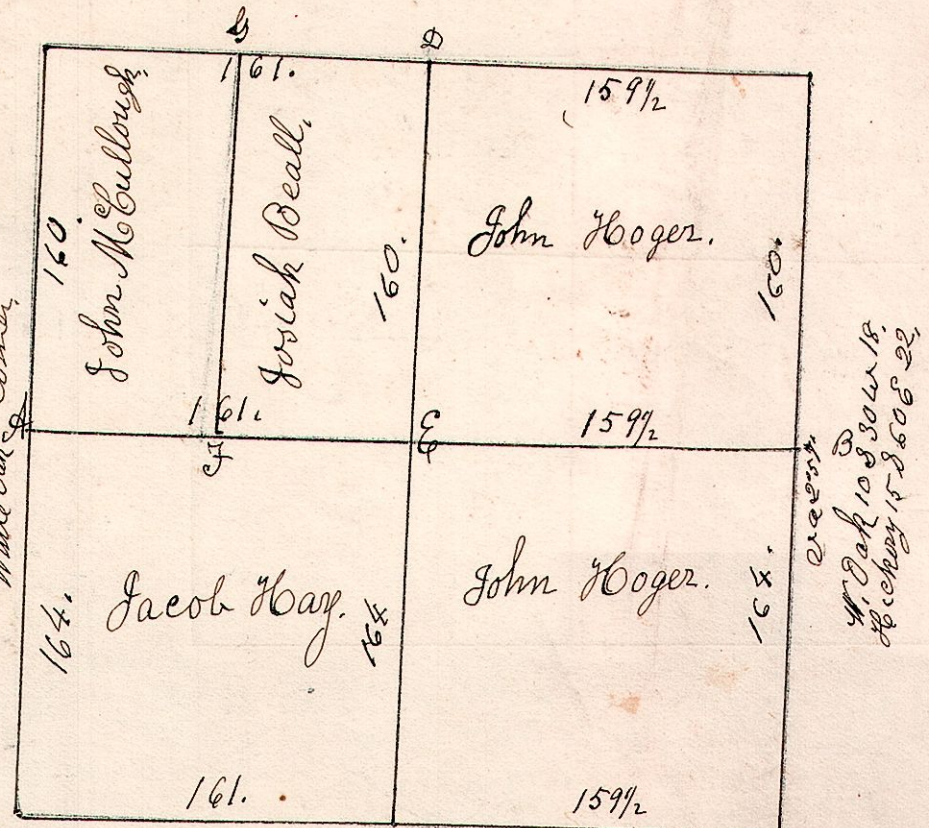 G
D
161.
159 1/2
John McCullough.
Josiah Beall.
John Hoger.
160.
160.
160.
161.
159 1/2
A
F
E
B
W. Oak 10 S 30 W 18.
Hickory 15 S 60 E 22.
Jacob Hay.
John Hoger.
164.
164
164.
161.
159 1/2